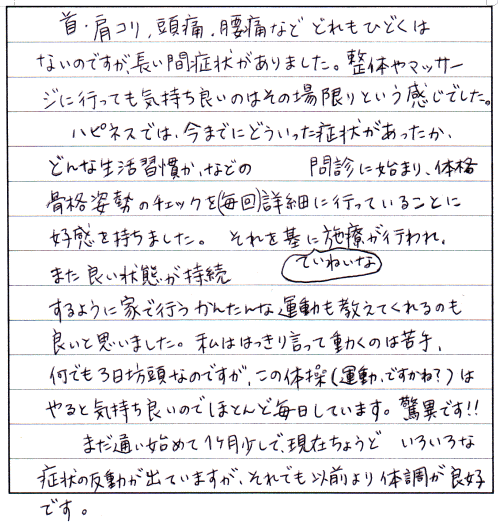 首・肩コリ,頭痛.腰痛など どれもひどくは
ないのですが、長い間症状がありました。整体やマッサー
ジに行っても気持ち良いのはその場限りという感じでした。
ハピネスでは、今までにどういった症状があったか、
どんな生活習慣か、などの 問診に始まり、体格
骨格姿勢のチェックを(毎回)詳細に行っていることに
好感を持ちました。 それを基に施療が行われ、
ていねいな
また良い状態が持続
するように家で行うかんたんな運動も教えてくれるのも
良いと思いました。私ははっきり言って動くのは苦手、
何でも3日坊頭なのですが、この体操(運動、ですかね?)は
やると気持ち良いのでほとんど毎日しています。驚異です!!
まだ通い始めて1ヶ月少しで、現在ちょうど いろいろな
症状の反動が出ていますが、それでも以前より体調が良好
です。